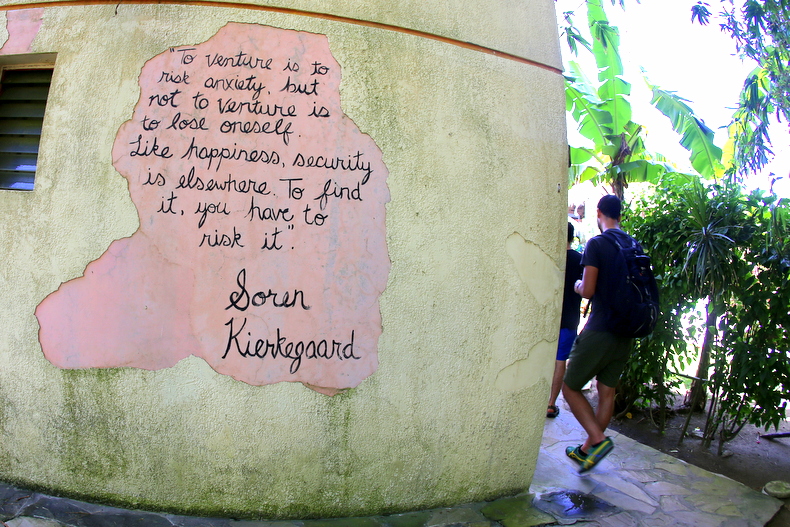 "To venture is to
risk anxiety, but
not to venture is
to lose oneself.
Like happiness, security
is elsewhere. To find
it, you have to
risk it".
Soren
Kierkegaard